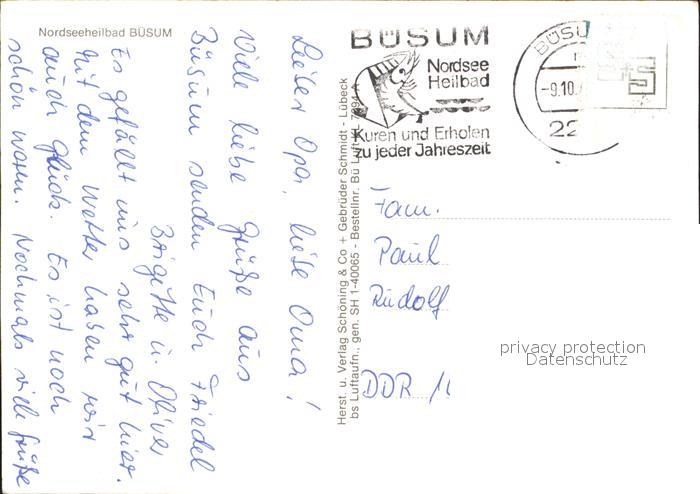 Nordseeheilbad BÜSUM
Lieber Opa, liebe Oma!
Viele liebe Grüße aus
Büsum senden Euch Friedel
Brigitte u. Oliver
Es gefällt uns sehr gut hier.
Mit dem Wetter haben wir
auch Glück. Es ist noch
schön warm. Nochmals viele Grüße
Herst. u. Verlag Schöning & Co + Gebrüder Schmidt - Lübeck
bs Luftaufn., gen. SH 1-40065 - Bestellnr. Bü Luft
BÜSUM
Nordsee
Heilbad
Kuren und Erholen
zu jeder Jahreszeit
BÜSU
-9.10.
22
Fam.
Paul
Rudolf
DDR
privacy protection
Datenschutz